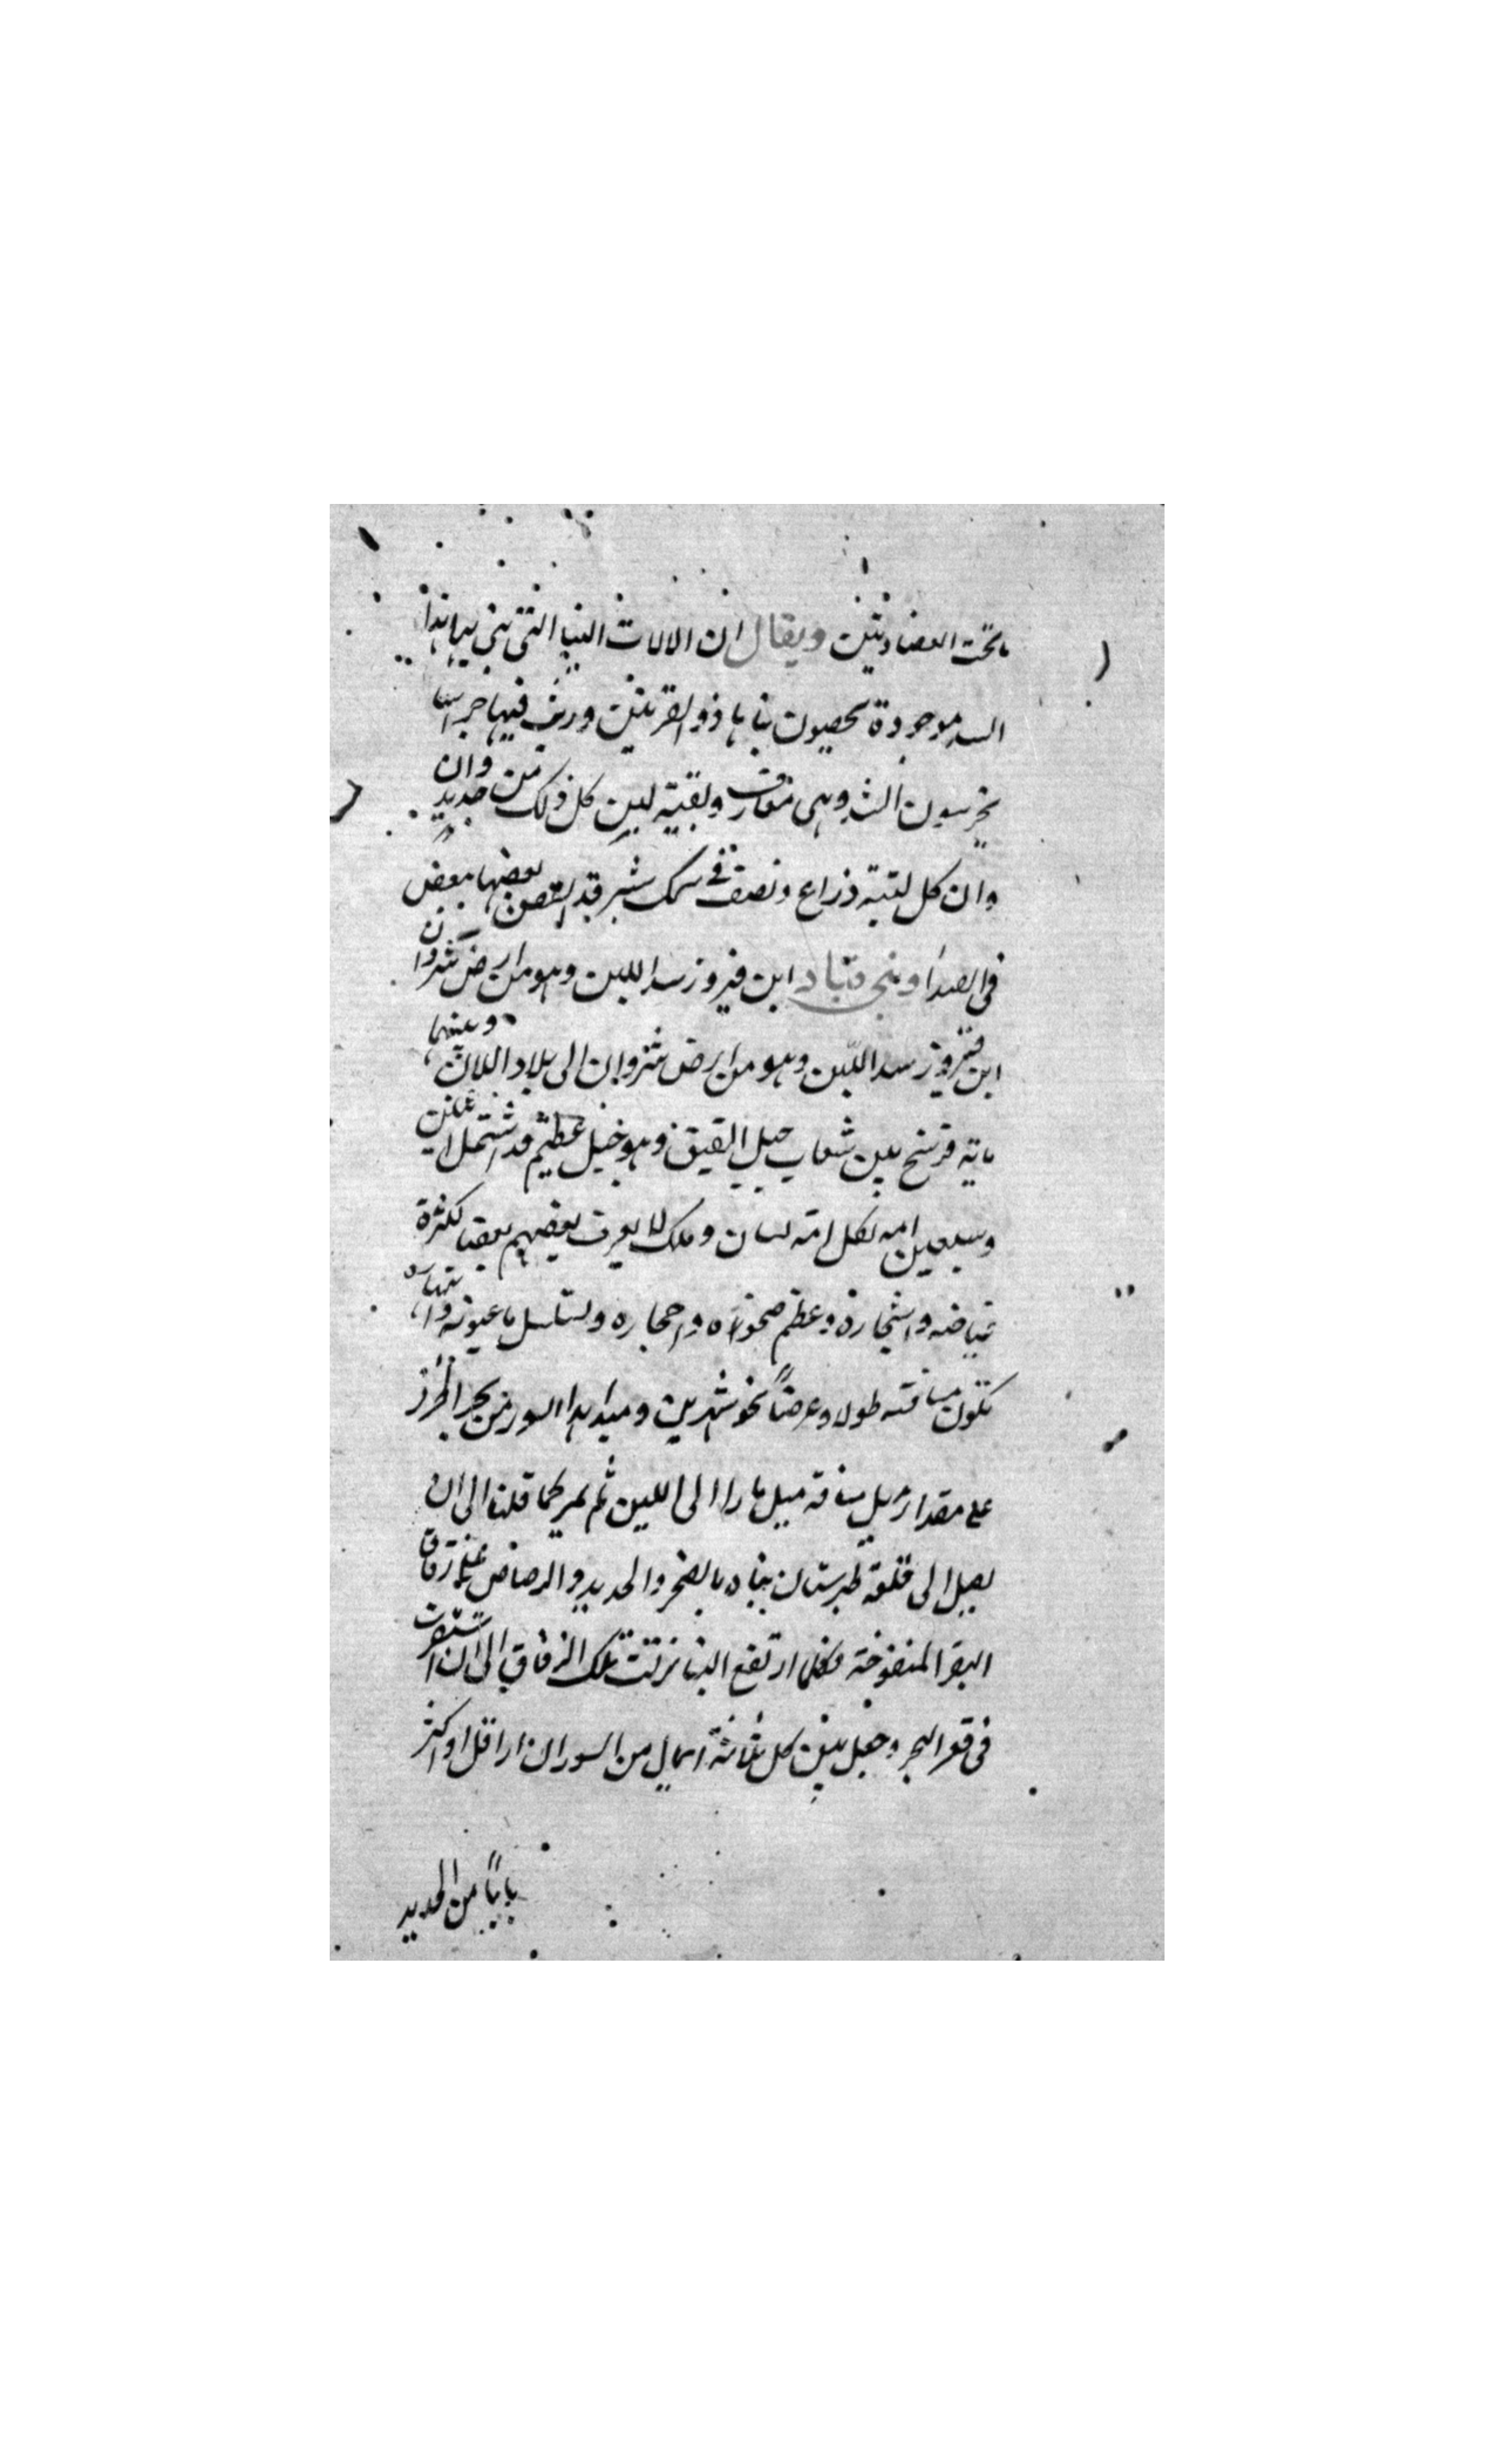 ما تحت العضادتين ويقال ان الالات البنا التى بنى بها هذا
السد موجودة بحصون بناها ذو القرنين ورتب فيها حراسا
يحرسون السد وهى مغارف وبقية لبن كل ذلك من حديد وان
وان كل لبنة ذراع ونصف فى سمك شبر قد التصق بعضها ببعض
فى الصدا وبنى قباد ابن فيروز سد اللبن وهو من ارض شروان
ابن فيروز سد اللبن وهو من ارض شروان الى بلاد اللان وبينهما
ماية فرسخ بين شعاب جبل القبق وهو جبل عظيم قد اشتمل اثنين
وسبعين امه لكل امة لسان وملك لا يعرف بعضهم بعضا لكثرة
غياضه واشجاره وعظم صخوره واحجاره وتسلسل ما عيونه وانهاره
تكون مسافته طولا وعرضاً نحو شهرين ومبدا هذا السور من بحر الخزر
على مقدار ميل مسافة ميل مارا الى اللبن ثم يمر كما قلنا الى ان
يصل الى قلعة طبرستان بناه بالصخر والحديد والرصاص على زقاق
البقر المنفوخة فكلما ارتفع البنا نزلت تلك الزقاق الى ان استقرت
فى قعر البحر وجعل بين كل ثلاثة اميال من السور ان ار اقل او اكثر
باباً من الحديد